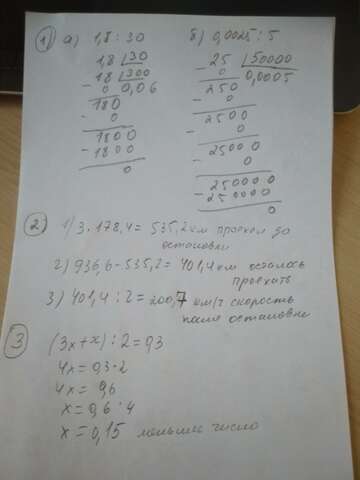 1) а) 1,8 : 30
1,8 | 30
- 18 | 300
- 0 0,06
180
- 0
1800
- 1800
0
б) 0,0025 : 5
- 25 | 50000
0 0,0005
250
- 0
2500
- 0
25000
- 0
250000
- 250000
0
2) 1) 3 · 178,4 = 535,2 км проехал до
остановки
2) 936,6 - 535,2 = 401,4 км осталось
проехать
3) 401,4 : 2 = 200,7 км/ч скорость
после остановки
3 (3x+x) : 2 = 0,3
4x = 0,3·2
4x = 0,6
x = 0,6 : 4
x = 0,15 меньшее число